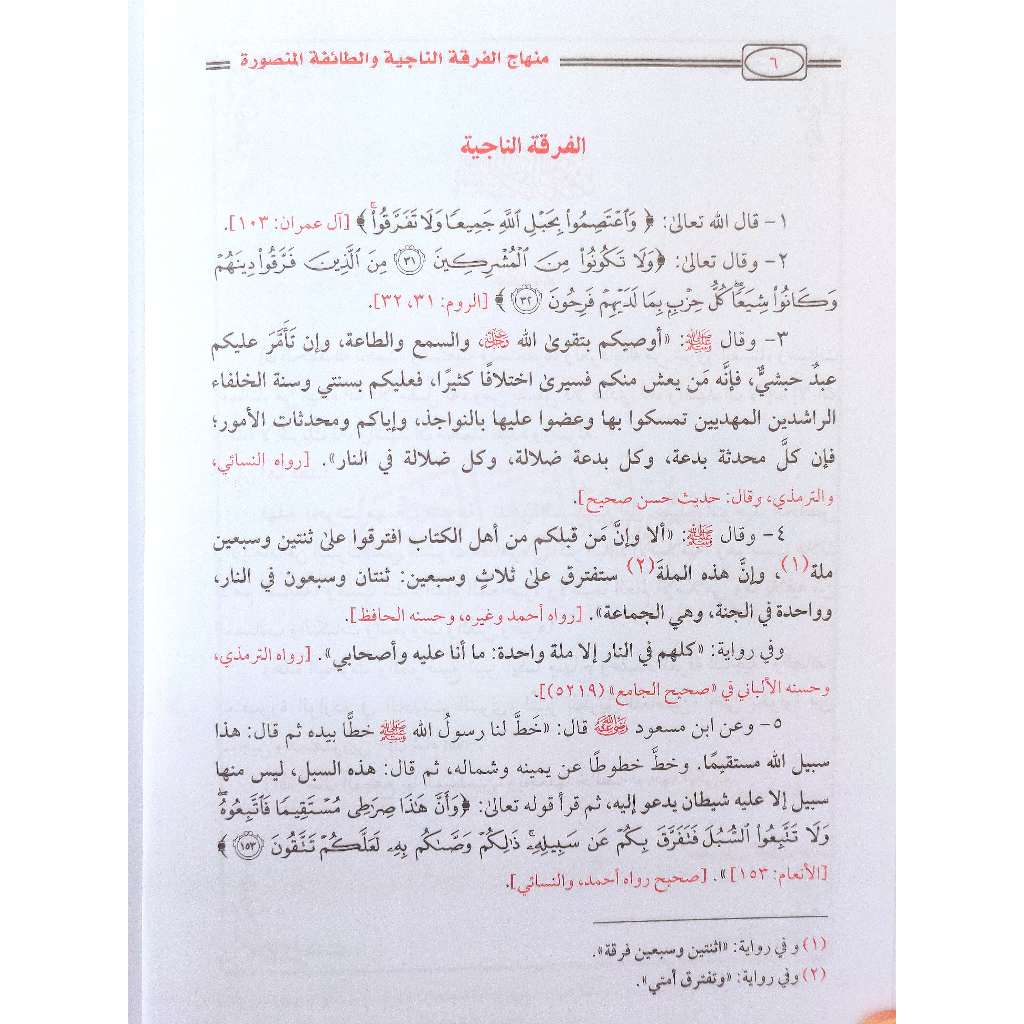 ٦
منهاج الفرقة الناجية والطائفة المنصورة
الفرقة الناجية
١- قال الله تعالىٰ: ﴿ وَٱعْتَصِمُوا۟ بِحَبْلِ ٱللَّهِ جَمِيعًا وَلَا تَفَرَّقُوا۟ۚ ﴾ [آل عمران: ١٠٣].
٢- وقال تعالىٰ: ﴿وَلَا تَكُونُوا۟ مِنَ ٱلْمُشْرِكِينَ ٣١ مِنَ ٱلَّذِينَ فَرَّقُوا۟ دِينَهُمْ
وَكَانُوا۟ شِيَعًاۖ كُلُّ حِزْبٍۭ بِمَا لَدَيْهِمْ فَرِحُونَ ٣٢ ﴾ [الروم: ٣١، ٣٢].
٣- وقال ﷺ: «أوصيكم بتقوىٰ الله ﷿، والسمع والطاعة، وإن تَأَمَّرَ عليكم
عبدٌ حبشيٌّ، فإنَّه مَن يعش منكم فسيرىٰ اختلافًا كثيرًا، فعليكم بسنتي وسنة الخلفاء
الراشدين المهديين تمسكوا بها وعضوا عليها بالنواجذ، وإياكم ومحدثات الأمور؛
فإن كلَّ محدثة بدعة، وكل بدعة ضلالة، وكل ضلالة في النار». [رواه النسائي،
والترمذي، وقال: حديث حسن صحيح].
٤- وقال ﷺ: «ألا وإنَّ مَن قبلكم من أهل الكتاب افترقوا علىٰ ثنتين وسبعين
ملة(١)، وإنَّ هذه الملةَ(٢) ستفترق علىٰ ثلاثٍ وسبعين: ثنتان وسبعون في النار،
وواحدة في الجنة، وهي الجماعة». [رواه أحمد وغيره، وحسنه الحافظ].
وفي رواية: «كلهم في النار إلا ملة واحدة: ما أنا عليه وأصحابي». [رواه الترمذي،
وحسنه الألباني في «صحيح الجامع» (٥٢١٩)].
٥- وعن ابن مسعود رضي الله عنه قال: «خَطَّ لنا رسولُ الله ﷺ خطًّا بيده ثم قال: هذا
سبيل الله مستقيمًا. وخطَّ خطوطًا عن يمينه وشماله، ثم قال: هذه السبل، ليس منها
سبيل إلا عليه شيطان يدعو إليه، ثم قرأ قوله تعالىٰ: ﴿وَأَنَّ هَـٰذَا صِرَٰطِى مُسْتَقِيمًا فَٱتَّبِعُوهُۖ
وَلَا تَتَّبِعُوا۟ ٱلسُّبُلَ فَتَفَرَّقَ بِكُمْ عَن سَبِيلِهِۦۚ ذَٰلِكُمْ وَصَّىٰكُم بِهِۦ لَعَلَّكُمْ تَتَّقُونَ ١٥٣ ﴾
[الأنعام: ١٥٣]». [صحيح رواه أحمد، والنسائي].
(١) وفي رواية: «اثنتين وسبعين فرقة».
(٢) وفي رواية: «وتفترق أمتي».